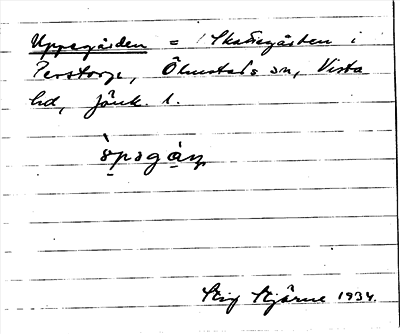 Uppegården = Skattegården i
Perstorp, Ölmstads sn, Vista
hd, Jönk. l.
Stig Stjärne 1934.